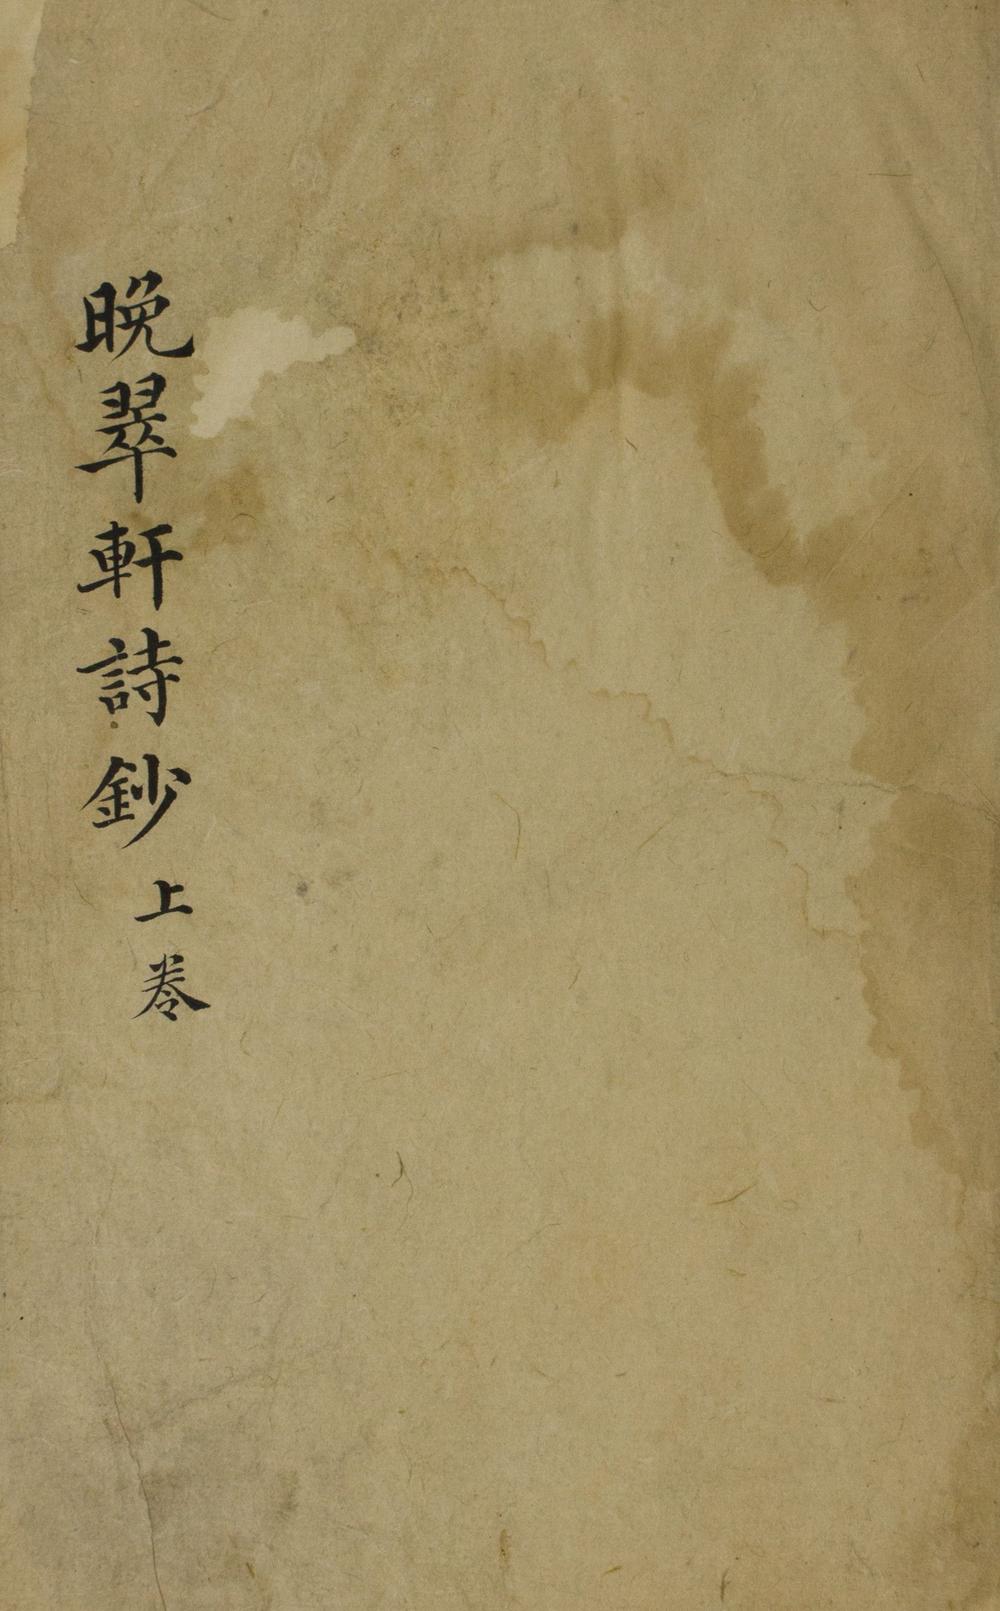 晩翠軒詩鈔 上卷